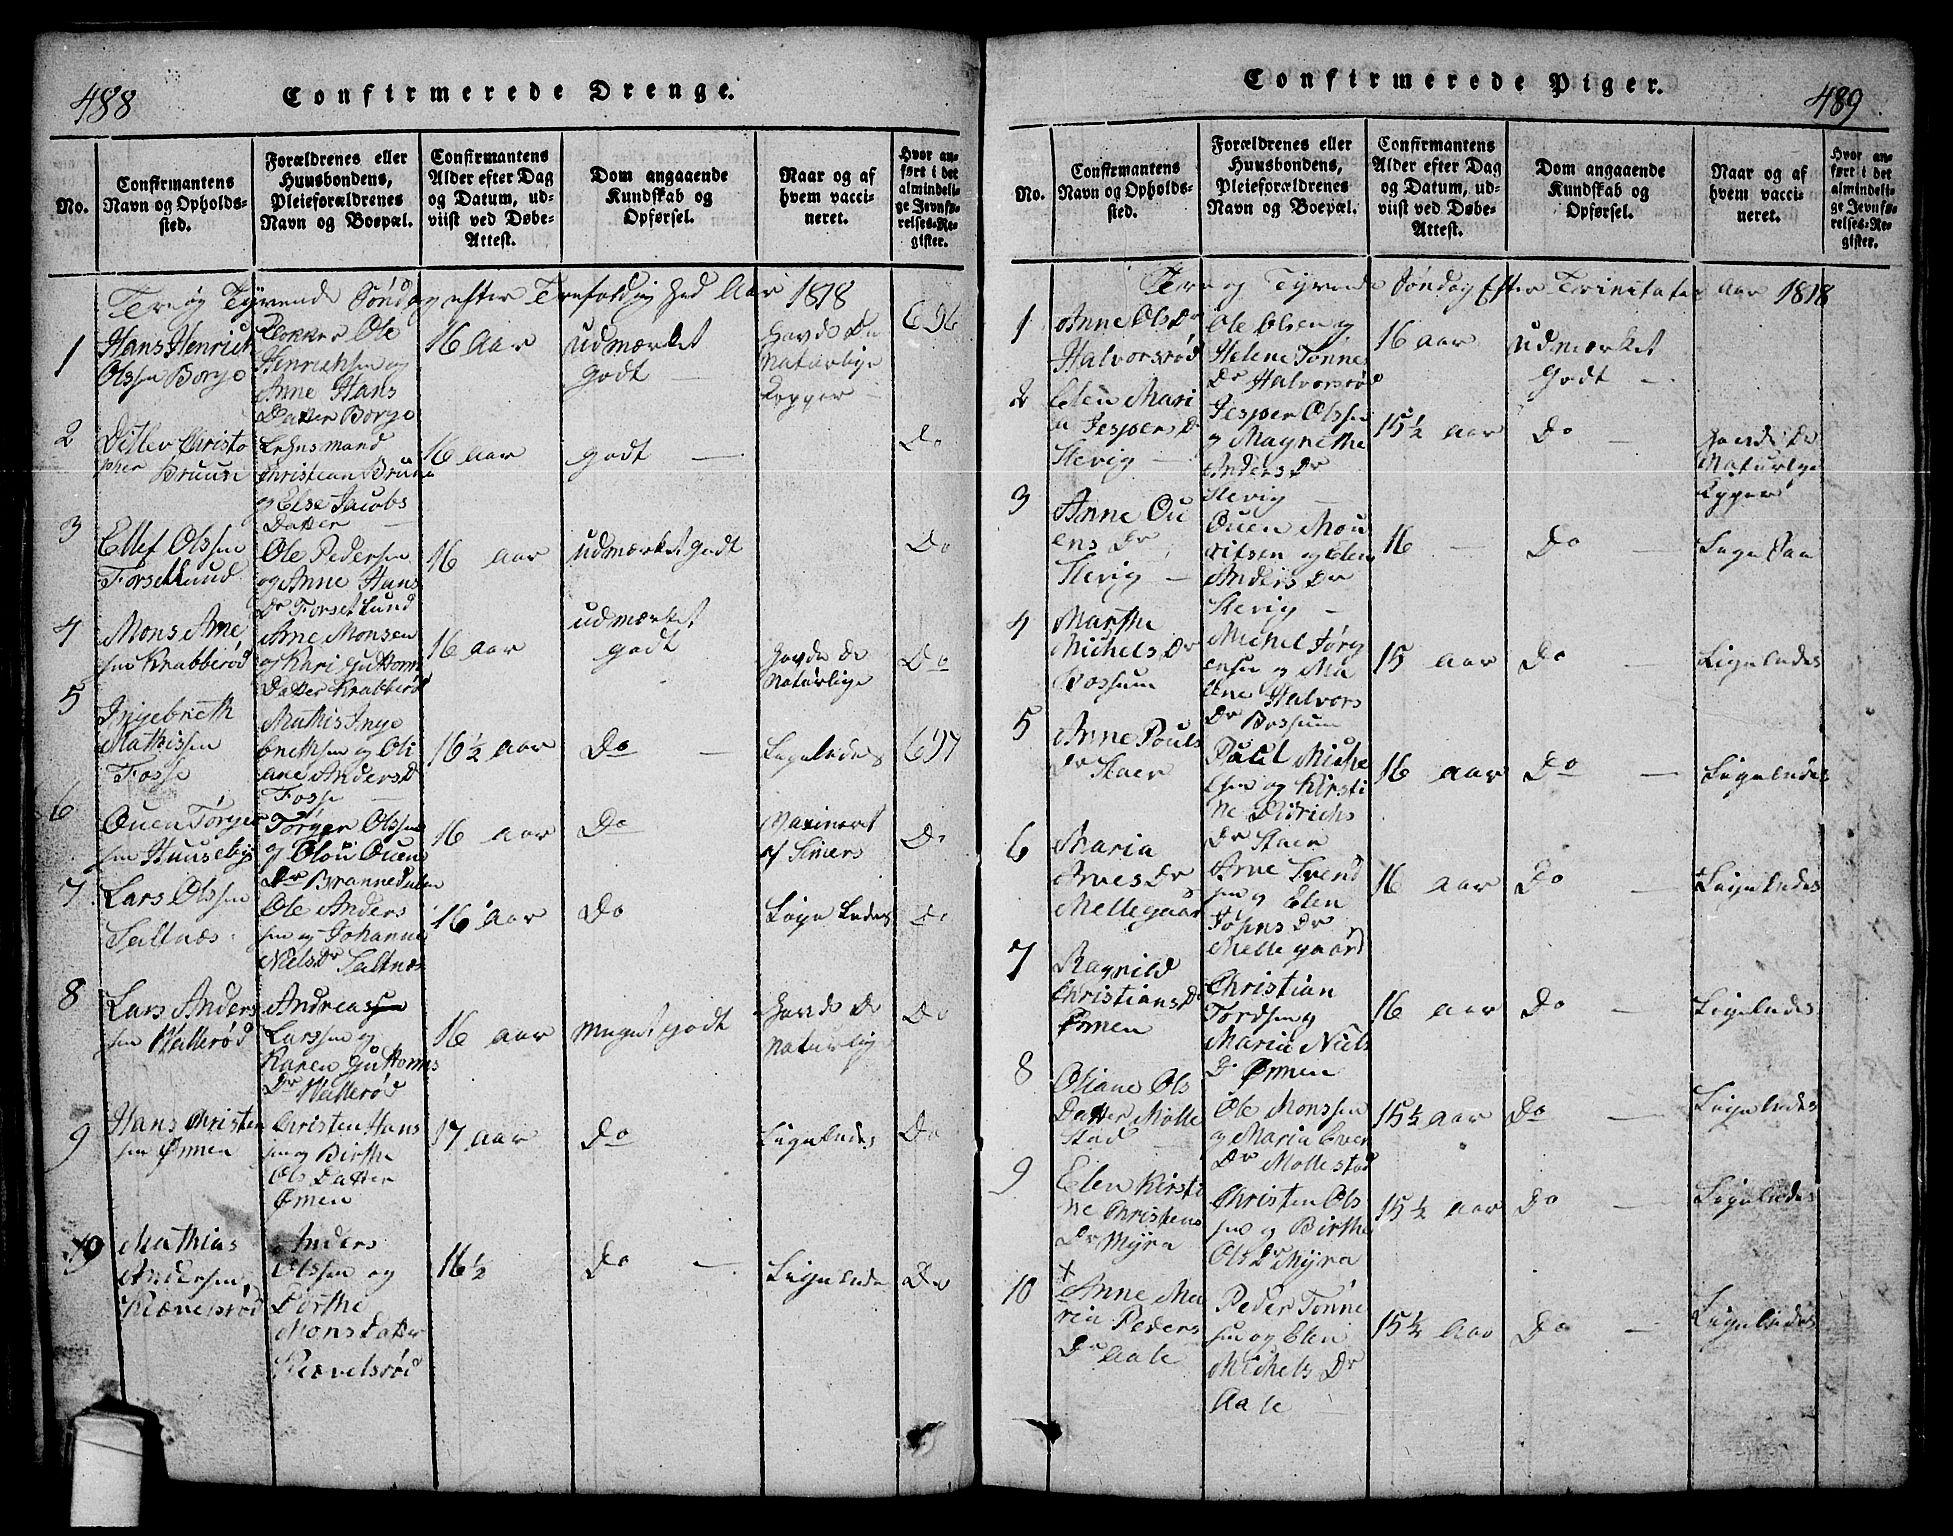 488
Confirmerede Drenge.
No.
Confirmantens
Navn og Opholds-
sted.
Forældrenes eller
Huusbondens,
Pleieforældrenes
Navn og Boepæl.
Confirmantens
Alder efter Dag
og Datum, ud-
viist ved Døbe-
Attest.
Dom angaaende
Kundskab og
Opførsel.
Naar og af
hvem vacci-
neret.
Hvor an-
ført i det
almindeli-
ge Jevnfø-
relses-Re-
gister.
Tre og Tyvende Søndag efter Trefoldighed Aar 1818
1
Hans Henrich
Olssen Borge
Klokker Ole
Henrichsen og
Anne Hans
Datter Borge
16 Aar
udmærket
godt —
Havde De
Naturlige
Kopper —
696
2
Ditlev Christo
pher Bruuse
Lehnsmand
Christian Bruun
og Else Jacobs
Datter —
16 aar
godt —
Do
3
Ellef Olssen
Forsetlund
Ole Pedersen
og Anne Hans
Dr Forsetlund
16 aar
udmærket godt
Do
4
Mons Arne
sen Knabberød
Arne Monsen
og Kari Guttorms
Datter Knabberød
16 aar
udmærket
godt
Havde De
Naturlige
Do
5
Ingebrecth
Mathissen
Fosse
Mathis Inge
brethsen og Oli
ane Anders D
Fosse —
16½ aar
Do —
Ligeledes
697
6
Ouen Törger
sen Huuseby
Törger Olssen
og Olou Ouen
Dr Brannedalen
16 aar
Do
Vaxineret
af Simers
Do
7
Lars Olssen
Saltnæs
Ole Anders
sen og Johanne
Niels Dr Saltnæs
16 aar
Do
Ligeledes
Do
8
Lars Anders
sen Hallerød
Andreas
Larssen og
Karen Guttorms
Dr Hallerød
16 aar
Meget godt
Havde De
Naturlig
Do
9
Hans Christen
sen Ørmen
Christen Hans
sen og Birthe
Ols Datter
Ørmen
17 aar
Do
Ligeledes
Do
10
Mathias
Andersen
Kævelsrød
Anders
Olssen og
Dorthe
Mons Datter
Kævelsrød
16½
Do —
Ligelede
Do
Confirmerede Piger.
489
No.
Confirmantens
Navn og Opholds-
sted.
Forældrenes eller
Huusbondens,
Pleieforældrenes
Navn og Boepæl.
Confirmantens
Alder efter Dag
og Datum, ud-
viist ved Døbe-
Attest.
Dom angaaende
Kundskab og
Opførsel.
Naar og af
hvem vacci-
neret.
Hvor an-
ført i det
almindeli-
ge Jevnfø-
relses-Re-
gister.
Tre og Tyvende Søndag Efter Trinitatis aar 1818
1
Anne Ols Dr
Halvorsrød
Ole Olsen og
Helene Tønnes
Dr Halvorsrød
16 aar
udmærket
Godt —
2
Elen Mari
a Jespers D
Slevig —
Jesper Olssen
og Magrethe
Anders Dr
Slevig —
15½ aar
Do —
Havde De
Naturlige
Kopper
3
Anne Ou
ens Dr
Slevig —
Ouen Mou
ritsen og Elen
Anders Dr
Slevig —
16 —
Do —
4
Marthe
Michels Dr
Bossum
Michel Jørg
ensen og Ma
Halvors
Dr Bossum
15 aar
Do —
Ligeledes
5
Anne Pouls
Dr Staer
Paul Miche
lsen og Kirsti
ne Didrichs
Dr Staer
16 aar
Do —
Ligeledes
6
Maria
Arnes Dr
Mellegaar
Arne Svend
sen og Elen
Johns Dr
Mellegaard
16 aar
Do —
Ligeledes
7
Ragnild
Christians D
Ørmen
Christian
Tordsen og
Maria Niels
D. Ørmen
16 aar
Do —
Ligeledes
8
Oliane Ols
Datter Molle
stad
Ole Monssen
og Maria Ever
Dr Mollestad
15½ aar
Do —
Ligeledes
9
Elen Kirsti
ne Christens
Dr Myra
Christen Ols
sen og Birthe
Ols Dr Myra
15½ aar
Do —
Ligeledes
10
x
Anne Ma
ria Peders
Dr Aale
Peder Tønne
sen og Elen
Michels Dr
Aale —
15½ Aar
Do —
Ligeledes